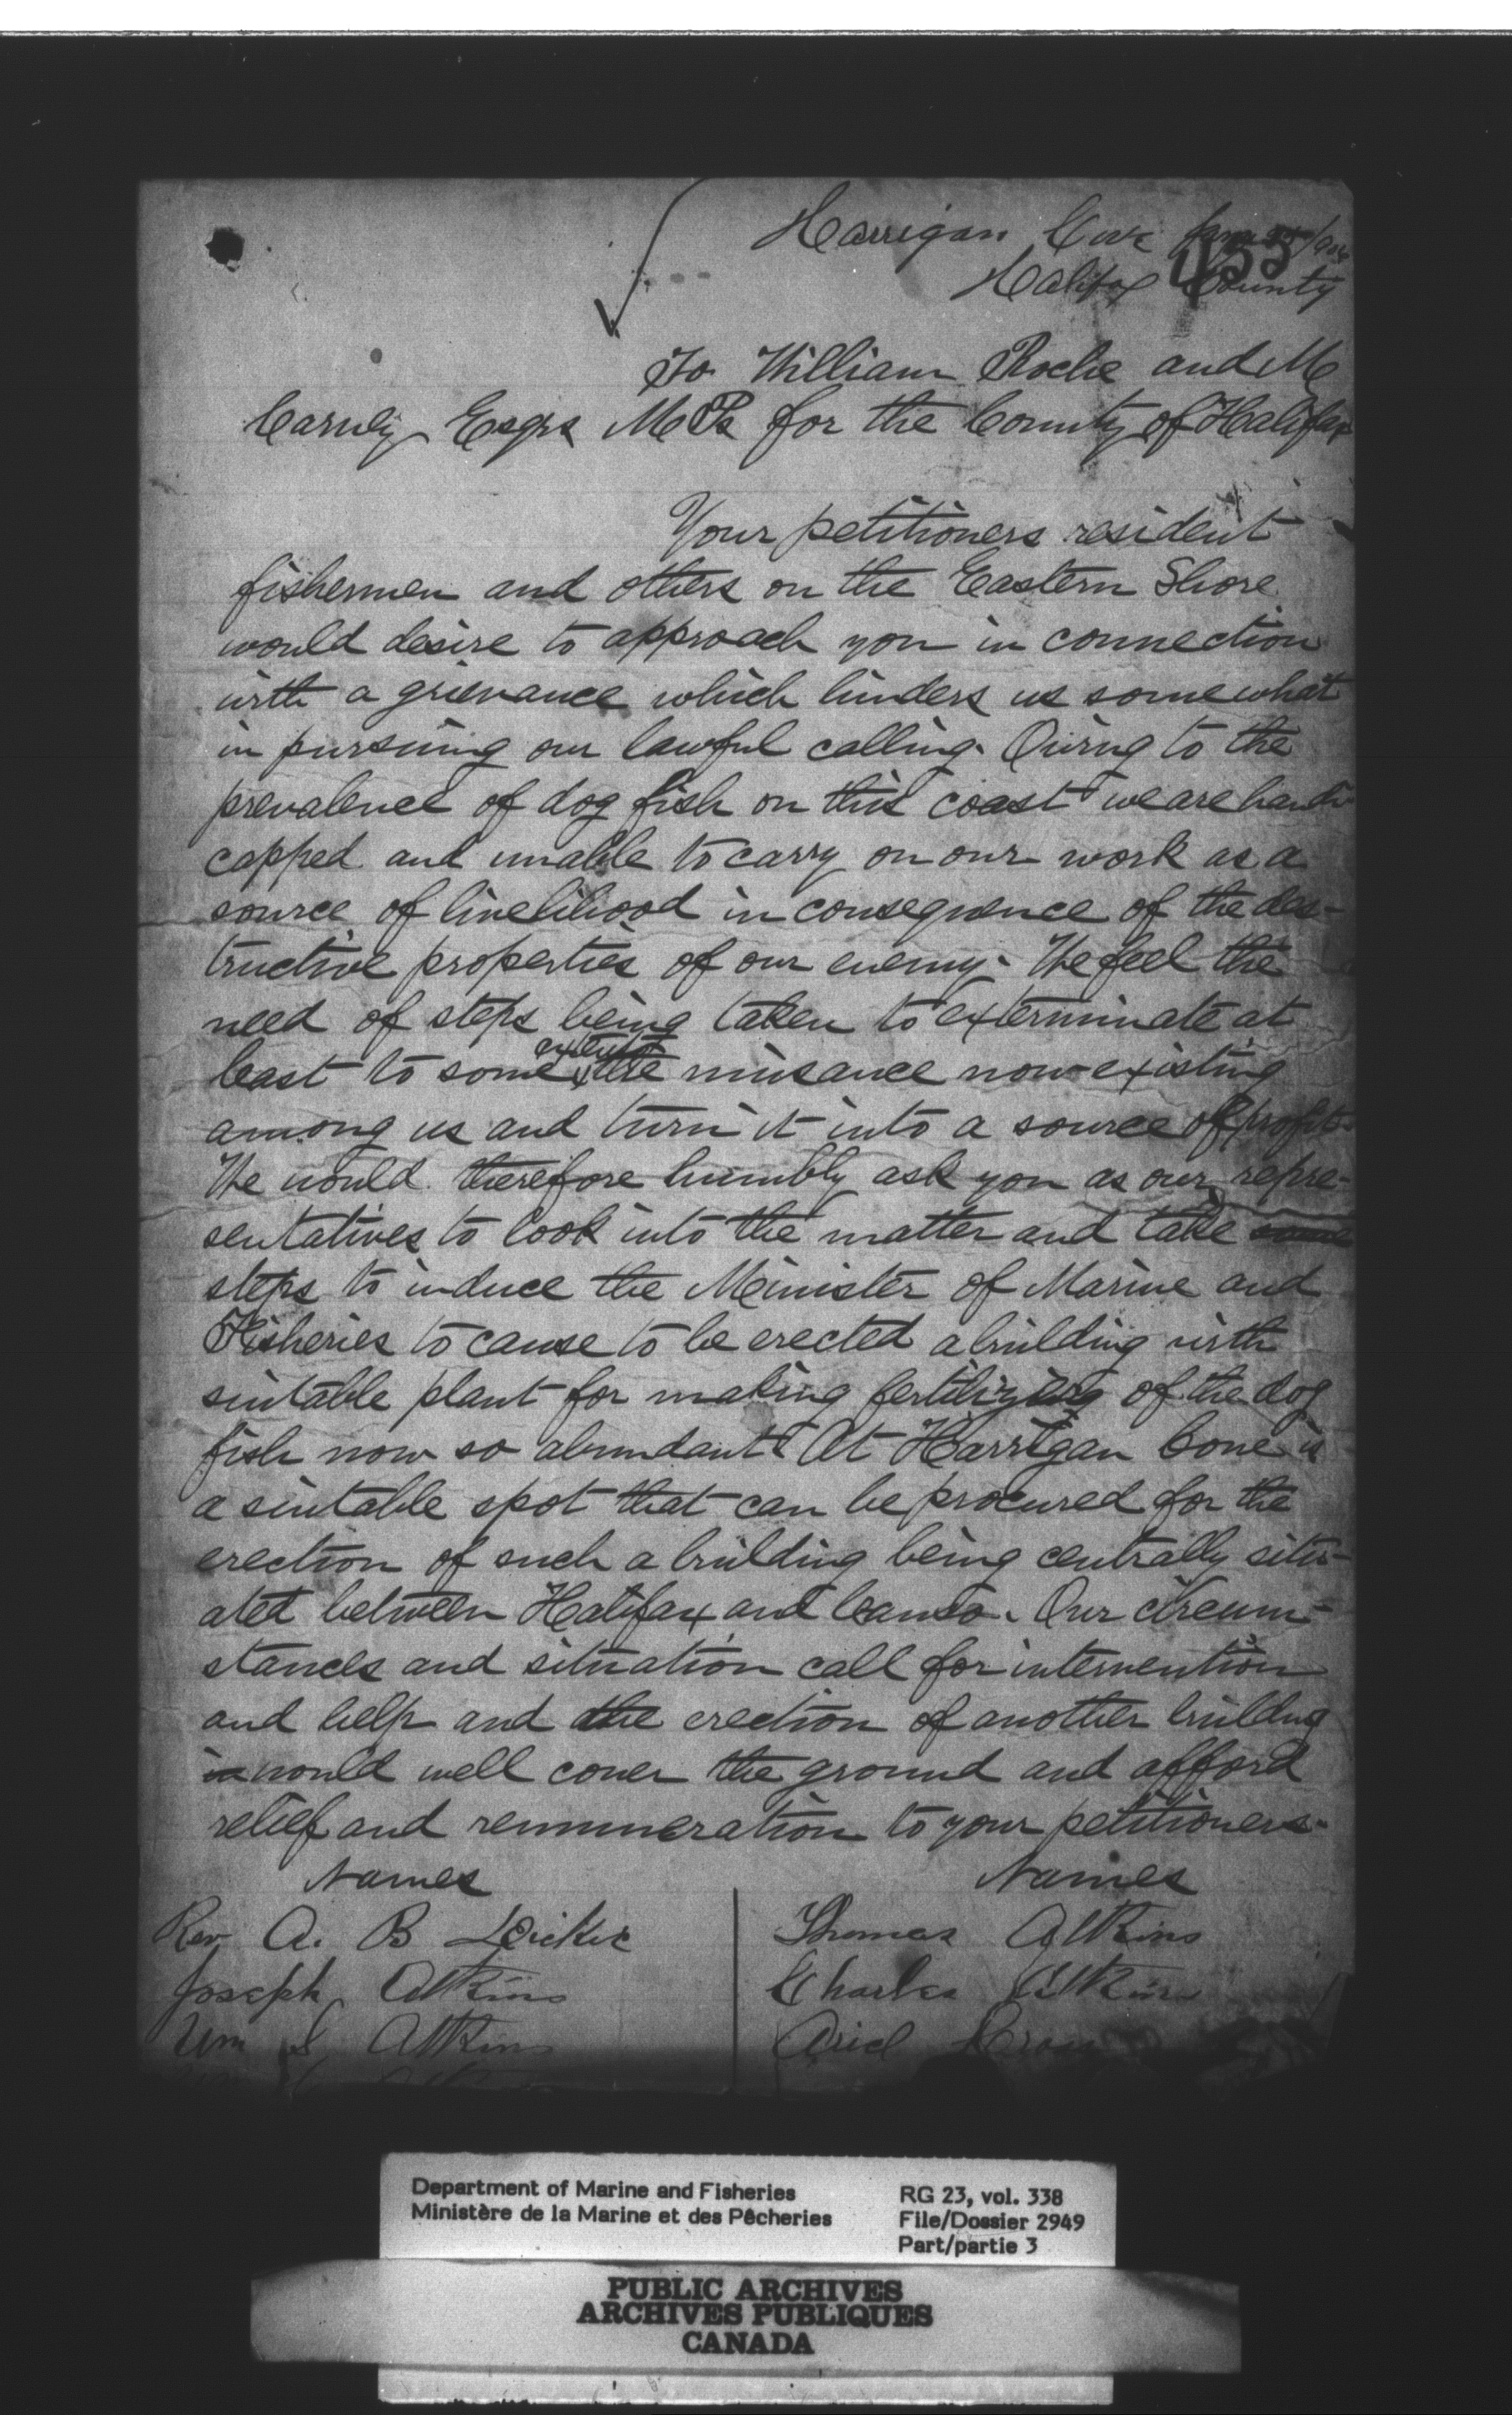 Harrigan Cove
455
Halifax County
To William Roche and M
Carney Esqrs M Ps for the County of Halifax
Your petitioners resident
fishermen and others on the Eastern Shore
would desire to approach you in connection
with a grievance which hinders us somewhat
in pursuing our lawful calling. Owing to the
prevalence of dog fish on this coast we are handi
capped and unable to carry on our work as a
source of livelihood in consequence of the des-
tructive properties of our enemy. We feel the
need of steps being taken to exterminate at
least to some extent the nuisance now existing
among us and turn it into a source of profit.
We would therefore humbly ask you as our repre-
sentatives to look into the matter and take some
steps to induce the Minister of Marine and
Fisheries to cause to be erected a building with
suitable plant for making fertilizing of the dog
fish now so abundant. At Harrigan Cove is
a suitable spot that can be procured for the
erection of such a building being centrally situ-
ated between Halifax and Canso. Our circum-
stances and situation call for intervention
and help and the erection of another building
would well cover the ground and afford
relief and remuneration to your petitioners.
Names Names
Rev A. B Thomas Atkins
Joseph Atkins Charles Atkins
Wm S Atkins Ariel
Department of Marine and Fisheries RG 23, vol. 338
Ministère de la Marine et des Pêcheries File/Dossier 2949
Part/partie 3
PUBLIC ARCHIVES
ARCHIVES PUBLIQUES
CANADA